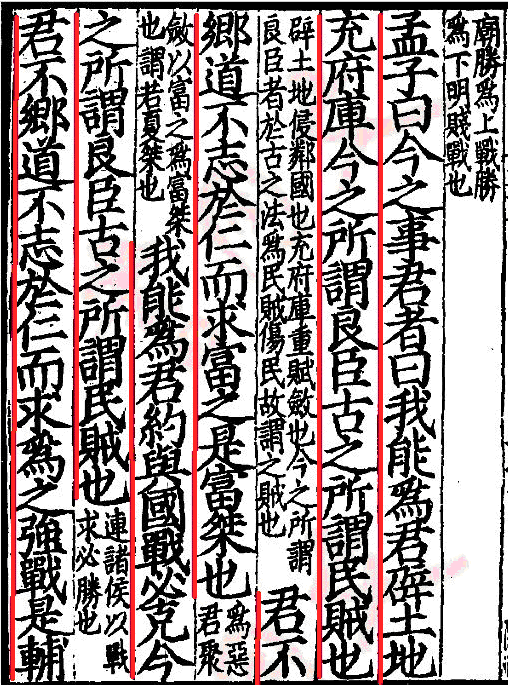 廟勝爲上戰勝
爲下明賤戰也
孟子曰今之事君者曰我能爲君辟土地
充府庫今之所謂良臣古之所謂民賊也
辟土地侵鄰國也充府庫重賦斂也今之所謂
良臣者於古之法爲民賊傷民故謂之賊也
君不
鄉道不志於仁而求富之是富桀也
爲惡
君聚
斂以富之爲富桀
也謂若夏桀也
我能爲君約與國戰必克今
之所謂良臣古之所謂民賊也
連諸侯以戰
求必勝也
君不鄉道不志於仁而求爲之強戰是輔